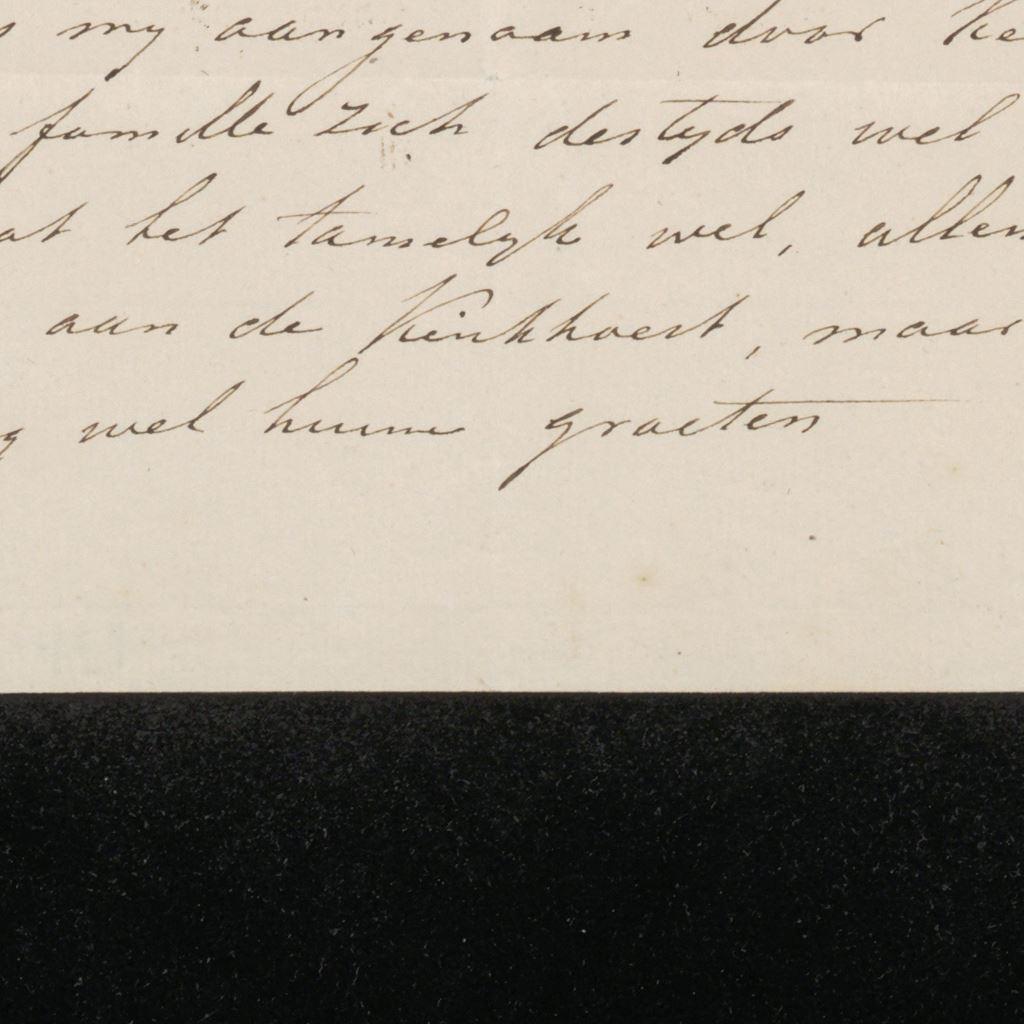 my aangenaam door
familie zich destyds wel
het tamelyk wel, allen
aan de Kinkhoest, maar
wel hunne groeten